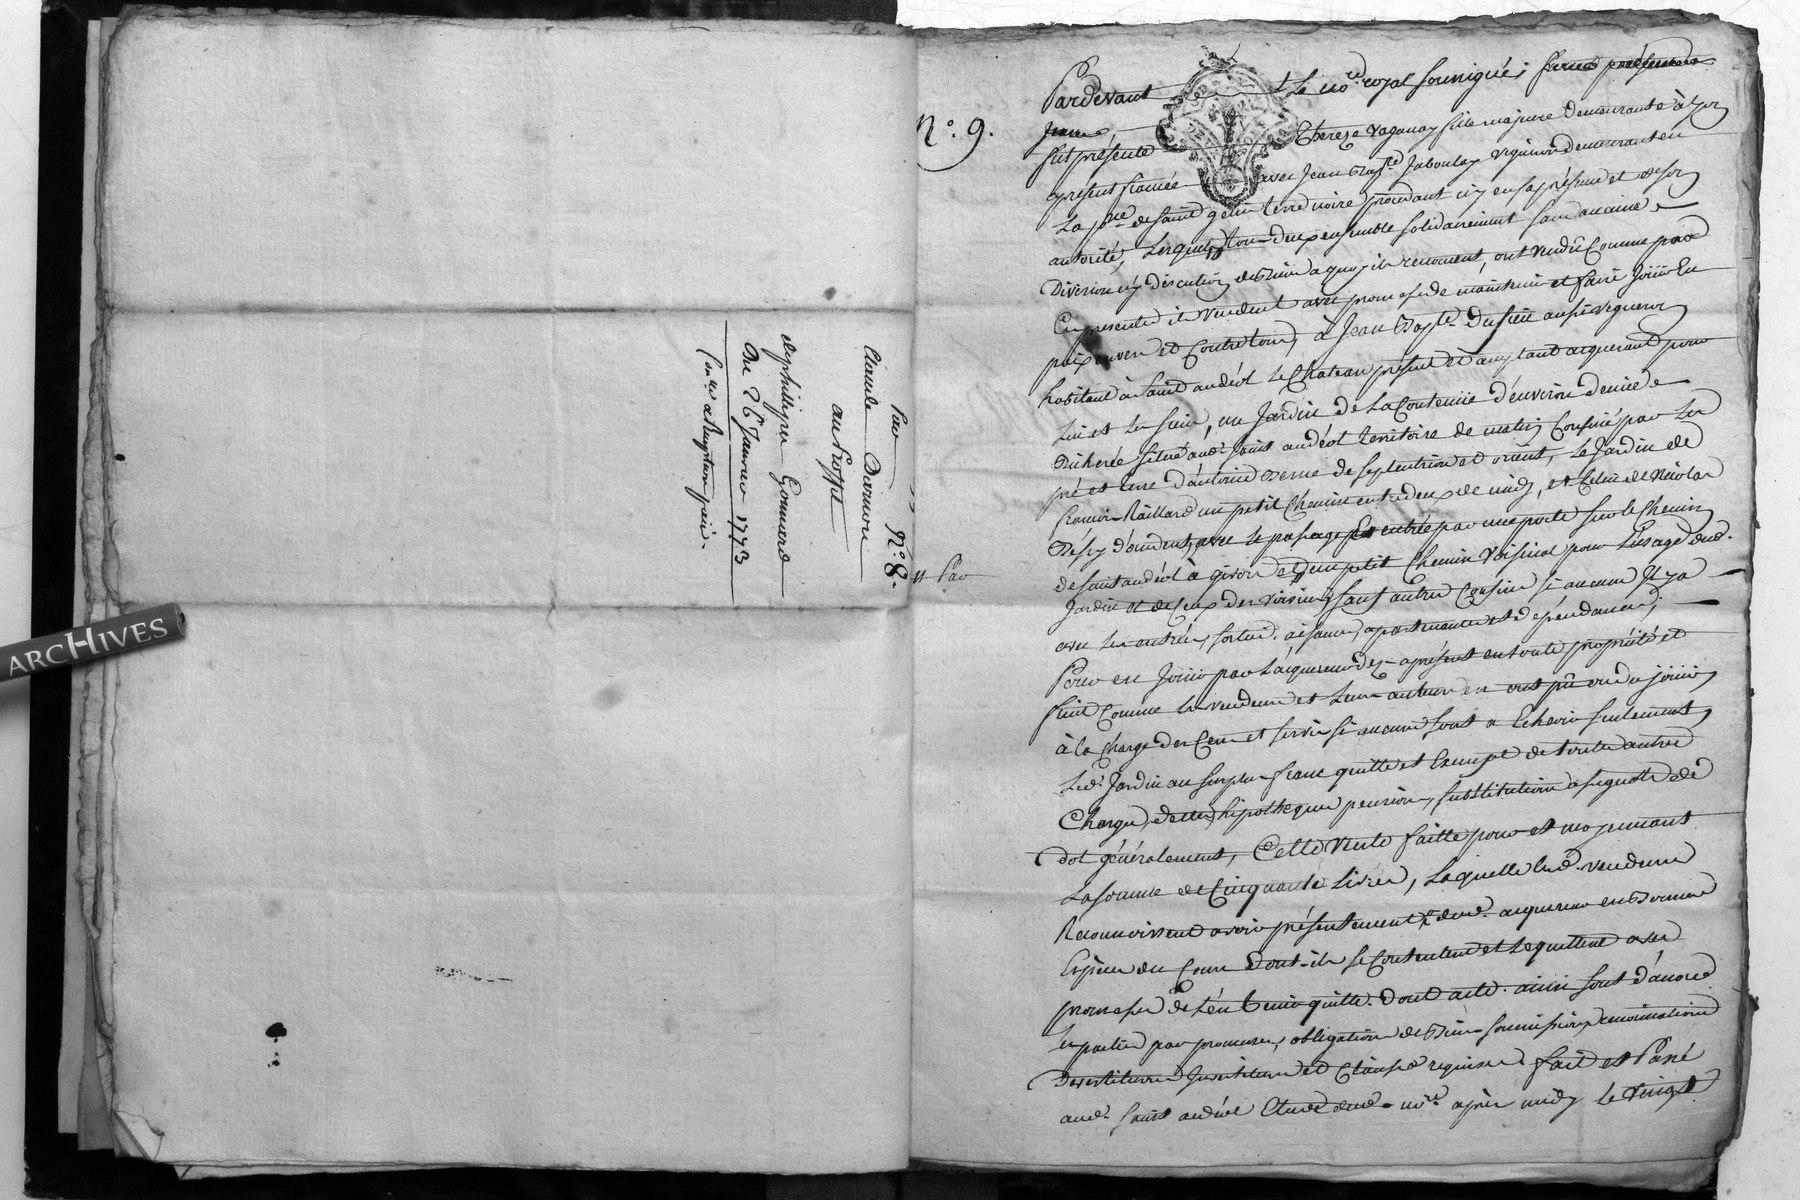 N.° 8.
Par
Claude Darnon
au proffit
de philippes Gonnard
Du 26 Janvier 1773
ARCHIVES
11 Par
N.° 9.
Pardevant Le no.re royal sousigné; furent présents
Jeanne,
fut présente Thereze Vaganay fille majeure demeurante à
présent fiancée avec Jean Bap.te Jaboulay vigneron demeurant en
La p.sse de saint genis terre noire procedant icy en sa présence et de son
autorité, Lesquels tous deux ensemble solidairement sans aucune
Division ny discution de biens a quoy ils renoncent, ont vendû Comme par
Ces presentes ils vendent avec promesse de maintenir et faire Joüir En
paix envers et Contre tous, à Jean Bapt.e Dufieu aussi vigneron
habitant à saint andéol Le Chateau présent et acceptant acquereur pour
Lui et les siens, un Jardin de La Contenüe d'environ demie
Bicherée situé aud.t saint andéol territoire de Confiné par les
pré et terre d'antoine Berne de septentrion et orient, Le Jardin de
françois Raillard un petit Chemin entredeux de midy, et Celui de Nicolas
d'occident, avec le passage et entrée par une porte sur le Chemin
de saint andéol à givors et un petit Chemin Voisinal pour L'usage dud.
Jardin et de Ceux des voisins sauf autres Confins si aucuns Il y a
avec les entrées, sorties, aisances, apartenances et dépendances,
Pour en Joüir par L'acquereur dez a présent en toute propriété et
fruit Comme les vendeurs et Leurs auteurs en ont pû ou du joüir
à la Charge des Cens et servis si aucuns sont a Echeoir seulement
Led.t Jardin au surplus franc quitte et Exempt de toutes autres
Charges, dettes, hipotheques pensions, substitutions
dot généralement, Cette Vente faitte pour et moyennant
La somme de Cinquante Livres, Laquelle Lesd. vendeurs
Reconnoissent avoir présentement dud. acquereur en Bonnes
Espèces du Cours Dont ils se Contentent et Le quittent avec
promesse de L'en tenir quitte. Dont acte. ainsi sont d'accord
les parties par promesses, obligations de Biens soumissions renonciations
Devestitures Investitures et Clauses requises. fait et Passé
aud.t saint andéol Etude dud. no.re après midy le Vingt